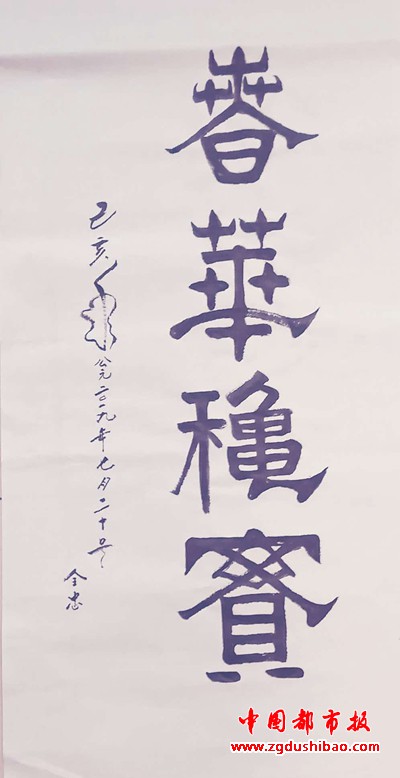 春華穐實
己亥 公元二〇一九年七月二十号
全忠
中国都市报
www.zgdushibao.com